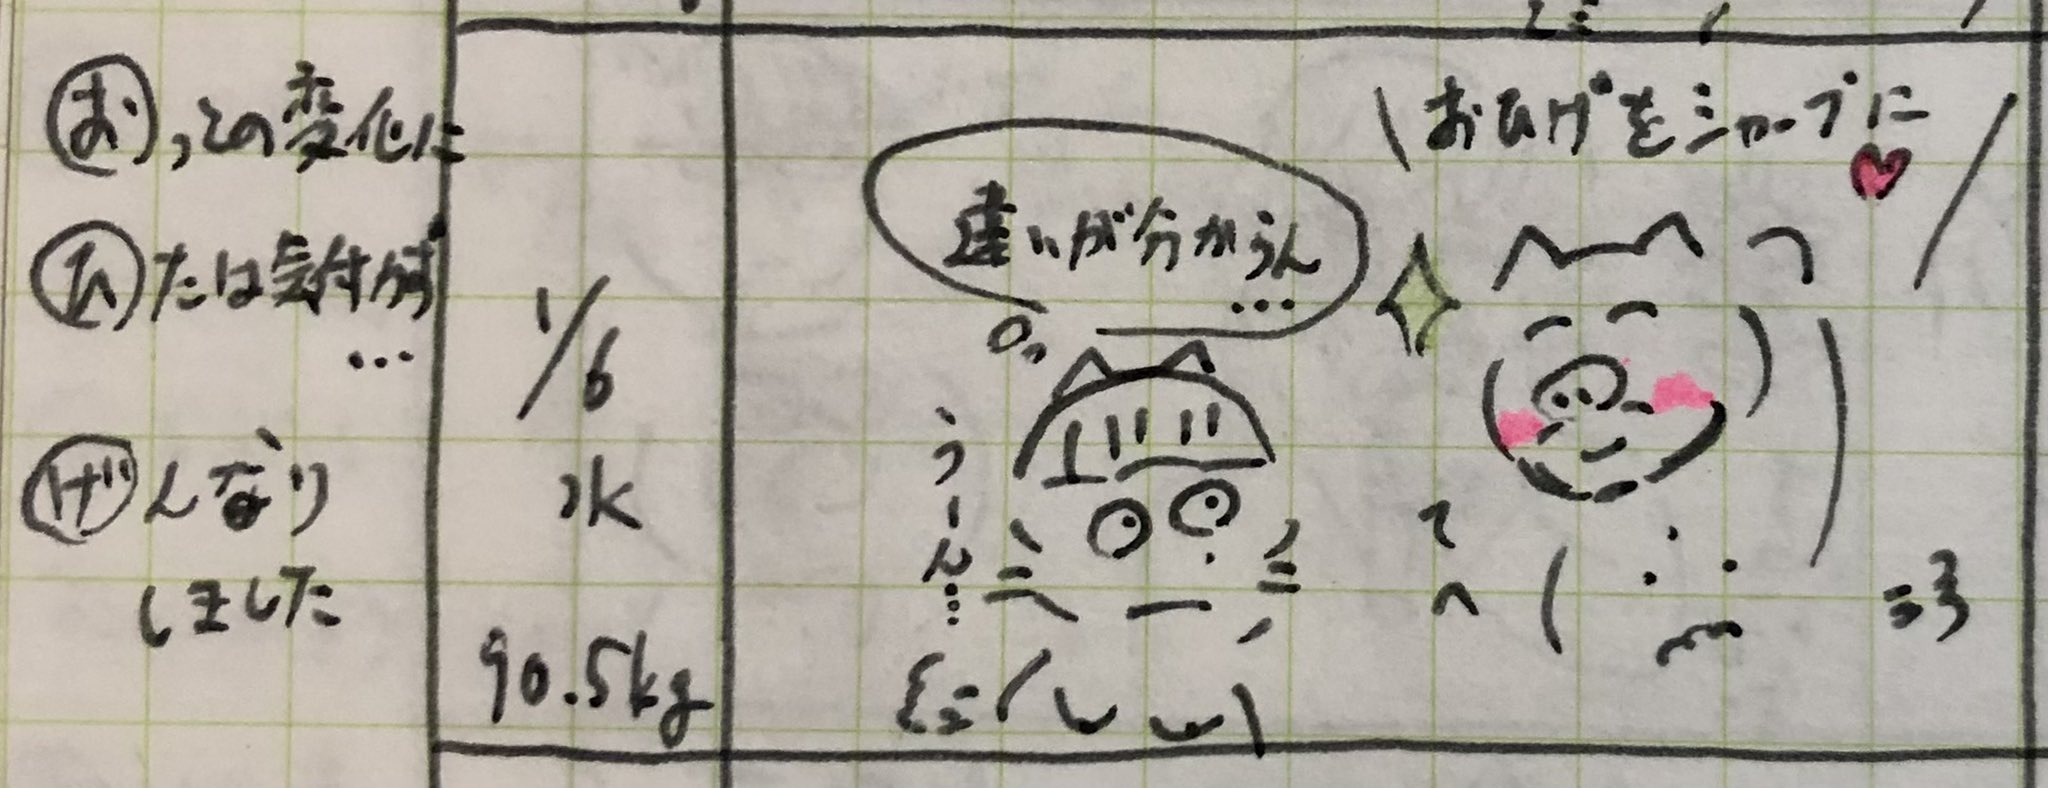 お っとの変化に
ひ たは気付かず
…
げ んなり
しました
1/6
水
90.5kg
違いが分からん
…
うーん…
おひげをシャープに